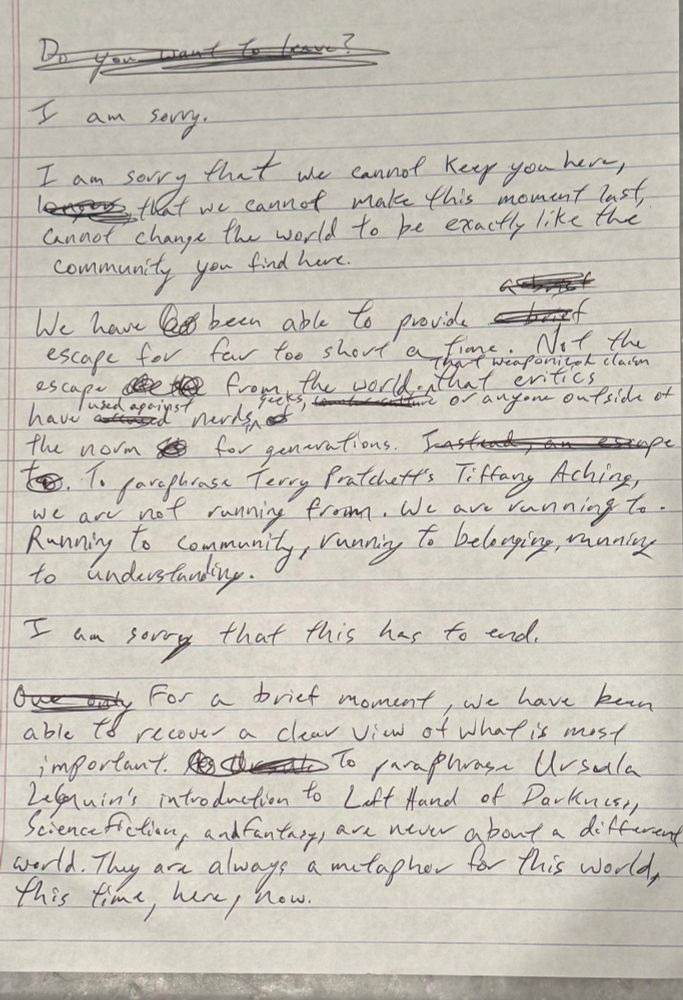 Do you want to leave?
I am sorry.
I am sorry that we cannot keep you here,
longer, that we cannot make this moment last,
cannot change the world to be exactly like the
community you find here.
a brief
We have been able to provide a brief
escape for far too short a time. Not the
escape from the world. that weaponized claim that critics
have used against nerds, geeks, counter culture or anyone outside of
the norm for generations. Instead, an escape
to. To paraphrase Terry Pratchett's Tiffany Aching,
we are not running from. We are running to.
Running to community, running to belonging, running
to understanding.
I am sorry that this has to end.
One only For a brief moment, we have been
able to recover a clear view of what is most
important. Ursula To paraphrase Ursula
LeGuin's introduction to Left Hand of Darkness,
Science fiction, and fantasy, are never about a different
world. They are always a metaphor for this world,
this time, here, now.